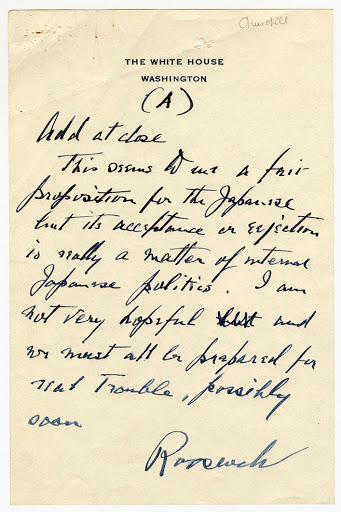 Churchill
THE WHITE HOUSE
WASHINGTON
(A)
Add at close
This seems to me a fair
proposition for the Japanese
but its acceptance or rejection
is really a matter of internal
Japanese politics. I am
not very hopeful and
we must all be prepared for
real trouble, possibly
soon
Roosevelt